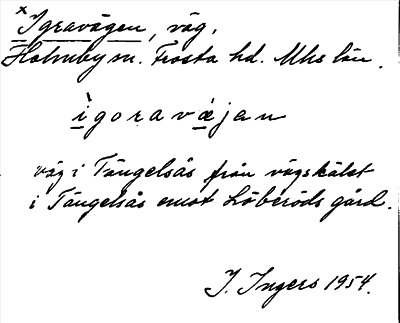 × Igravägen, väg.
Holmby sn. Frosta hd. Mhs län.
ìgoravæ̀jan
väg i Tängelsås från vägskälet
i Tängelsås emot Löberöds gård.
I. Ingers 1954.